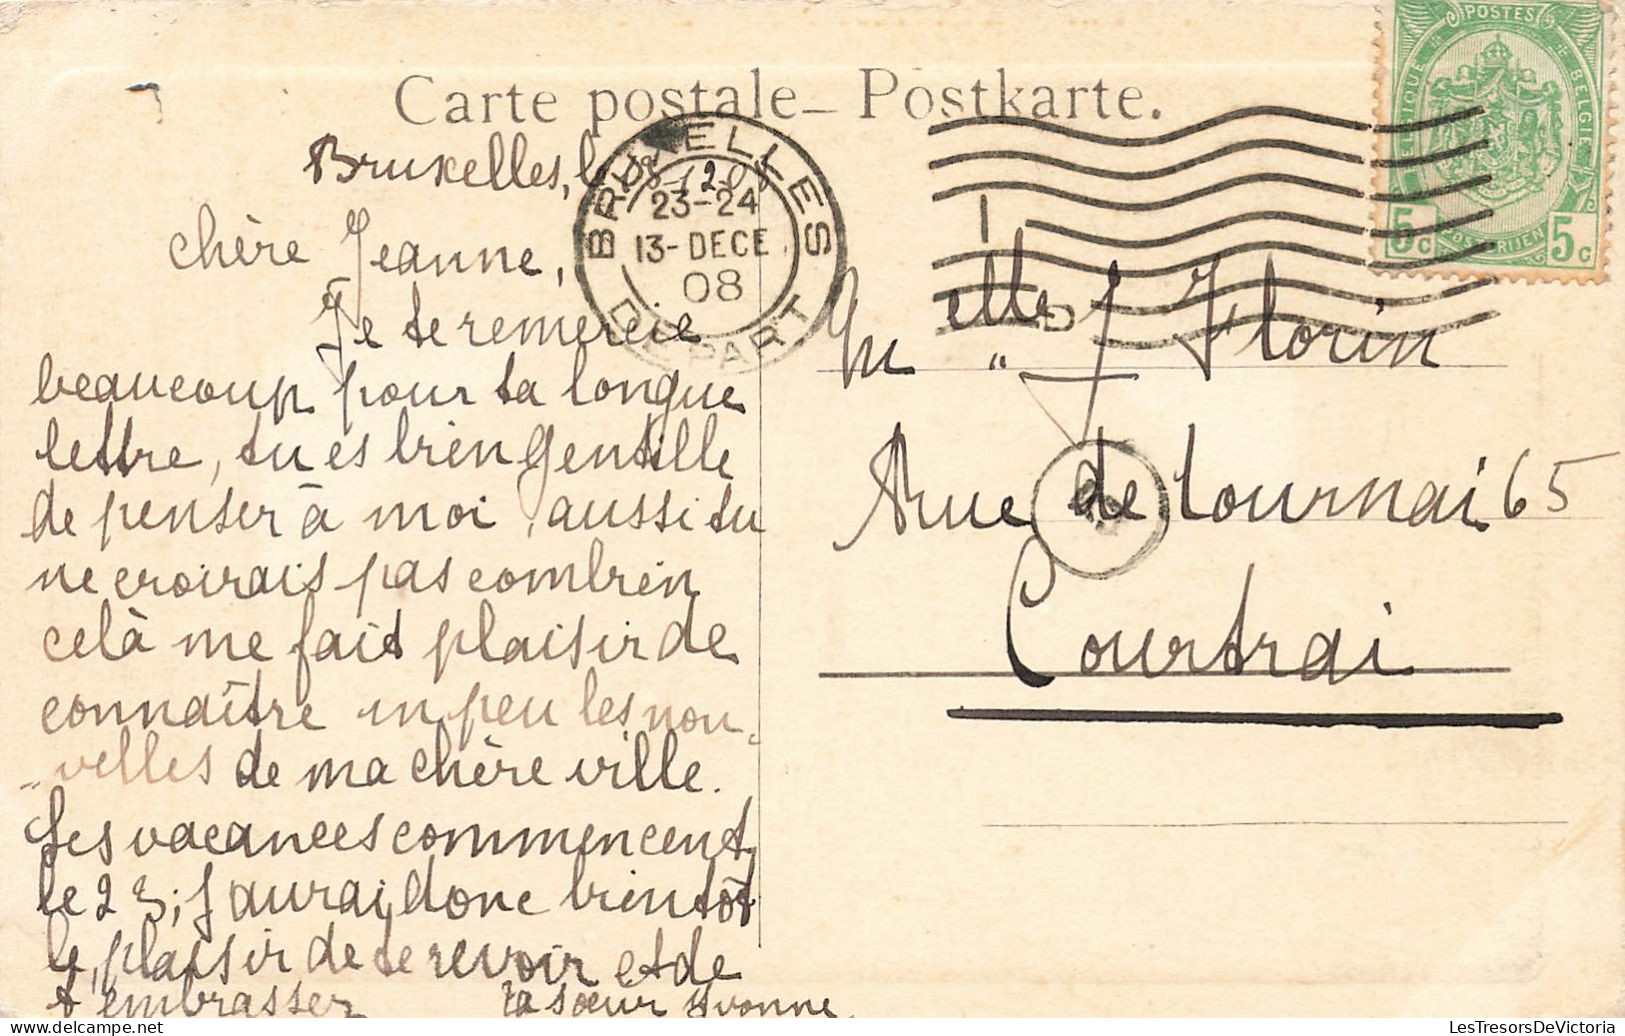 Carte postale – Postkarte.
POSTES
BELGIQUE
BELGIE
5c POSTERIJEN 5c
BRUXELLES
23-24
13-DECE
08
DEPART
Bruxelles, le
chère Jeanne,
Je te remercie
beaucoup pour ta longue
lettre, tu es bien gentille
de penser à moi, aussi tu
ne croirais pas combien
celà me fait plaisir de
connaître un peu les nou-
-velles de ma chère ville.
Les vacances commencent
le 23; j'aurai donc bientôt
le plaisir de te revoir et de
t'embrasser ta sœur Yvonne.
Melle J Florin
Rue de Tournai 65
Courtrai
LesTresorsDeVictoria